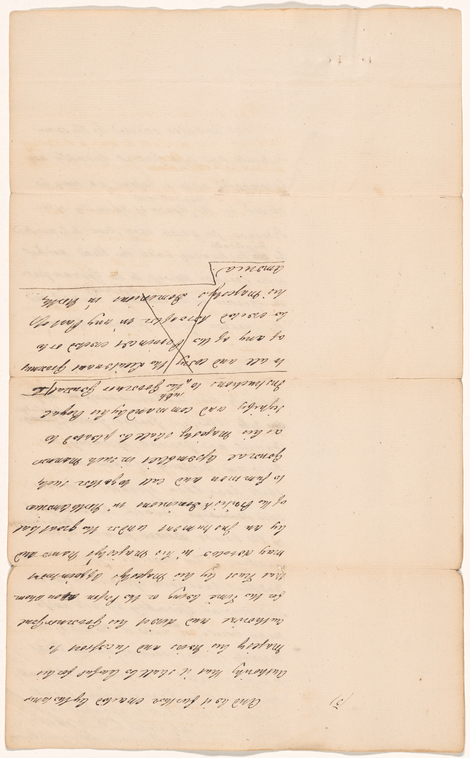 (3)
And be it further enacted by the same
Authority that it shall be lawful for his
Majesty his Heirs and Successors to
authorize and direct his Governor Genl
for the Time being or the Person upon whom
that Trust by his Majesty's Appointment
may devolve in his Majesty's Name and
by an Instrument under the great Seal
of the British Dominions in North America
to summon and call together such
General Assemblies in such Manner
as his Majesty shall be pleased to
signify and command by his Royal
Instructions to the Governor General
to all and every the Lieutenant Governors
of any of the Provinces erected or to
be erected hereafter in any Part of
his Majesty's Dominions in North
America.